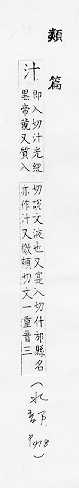 類篇
汁
即入切汁光紀
黑帝號又質入
切說文液也又寔入切什邡縣名
亦作汁又檄頰切文一重音三
(水部